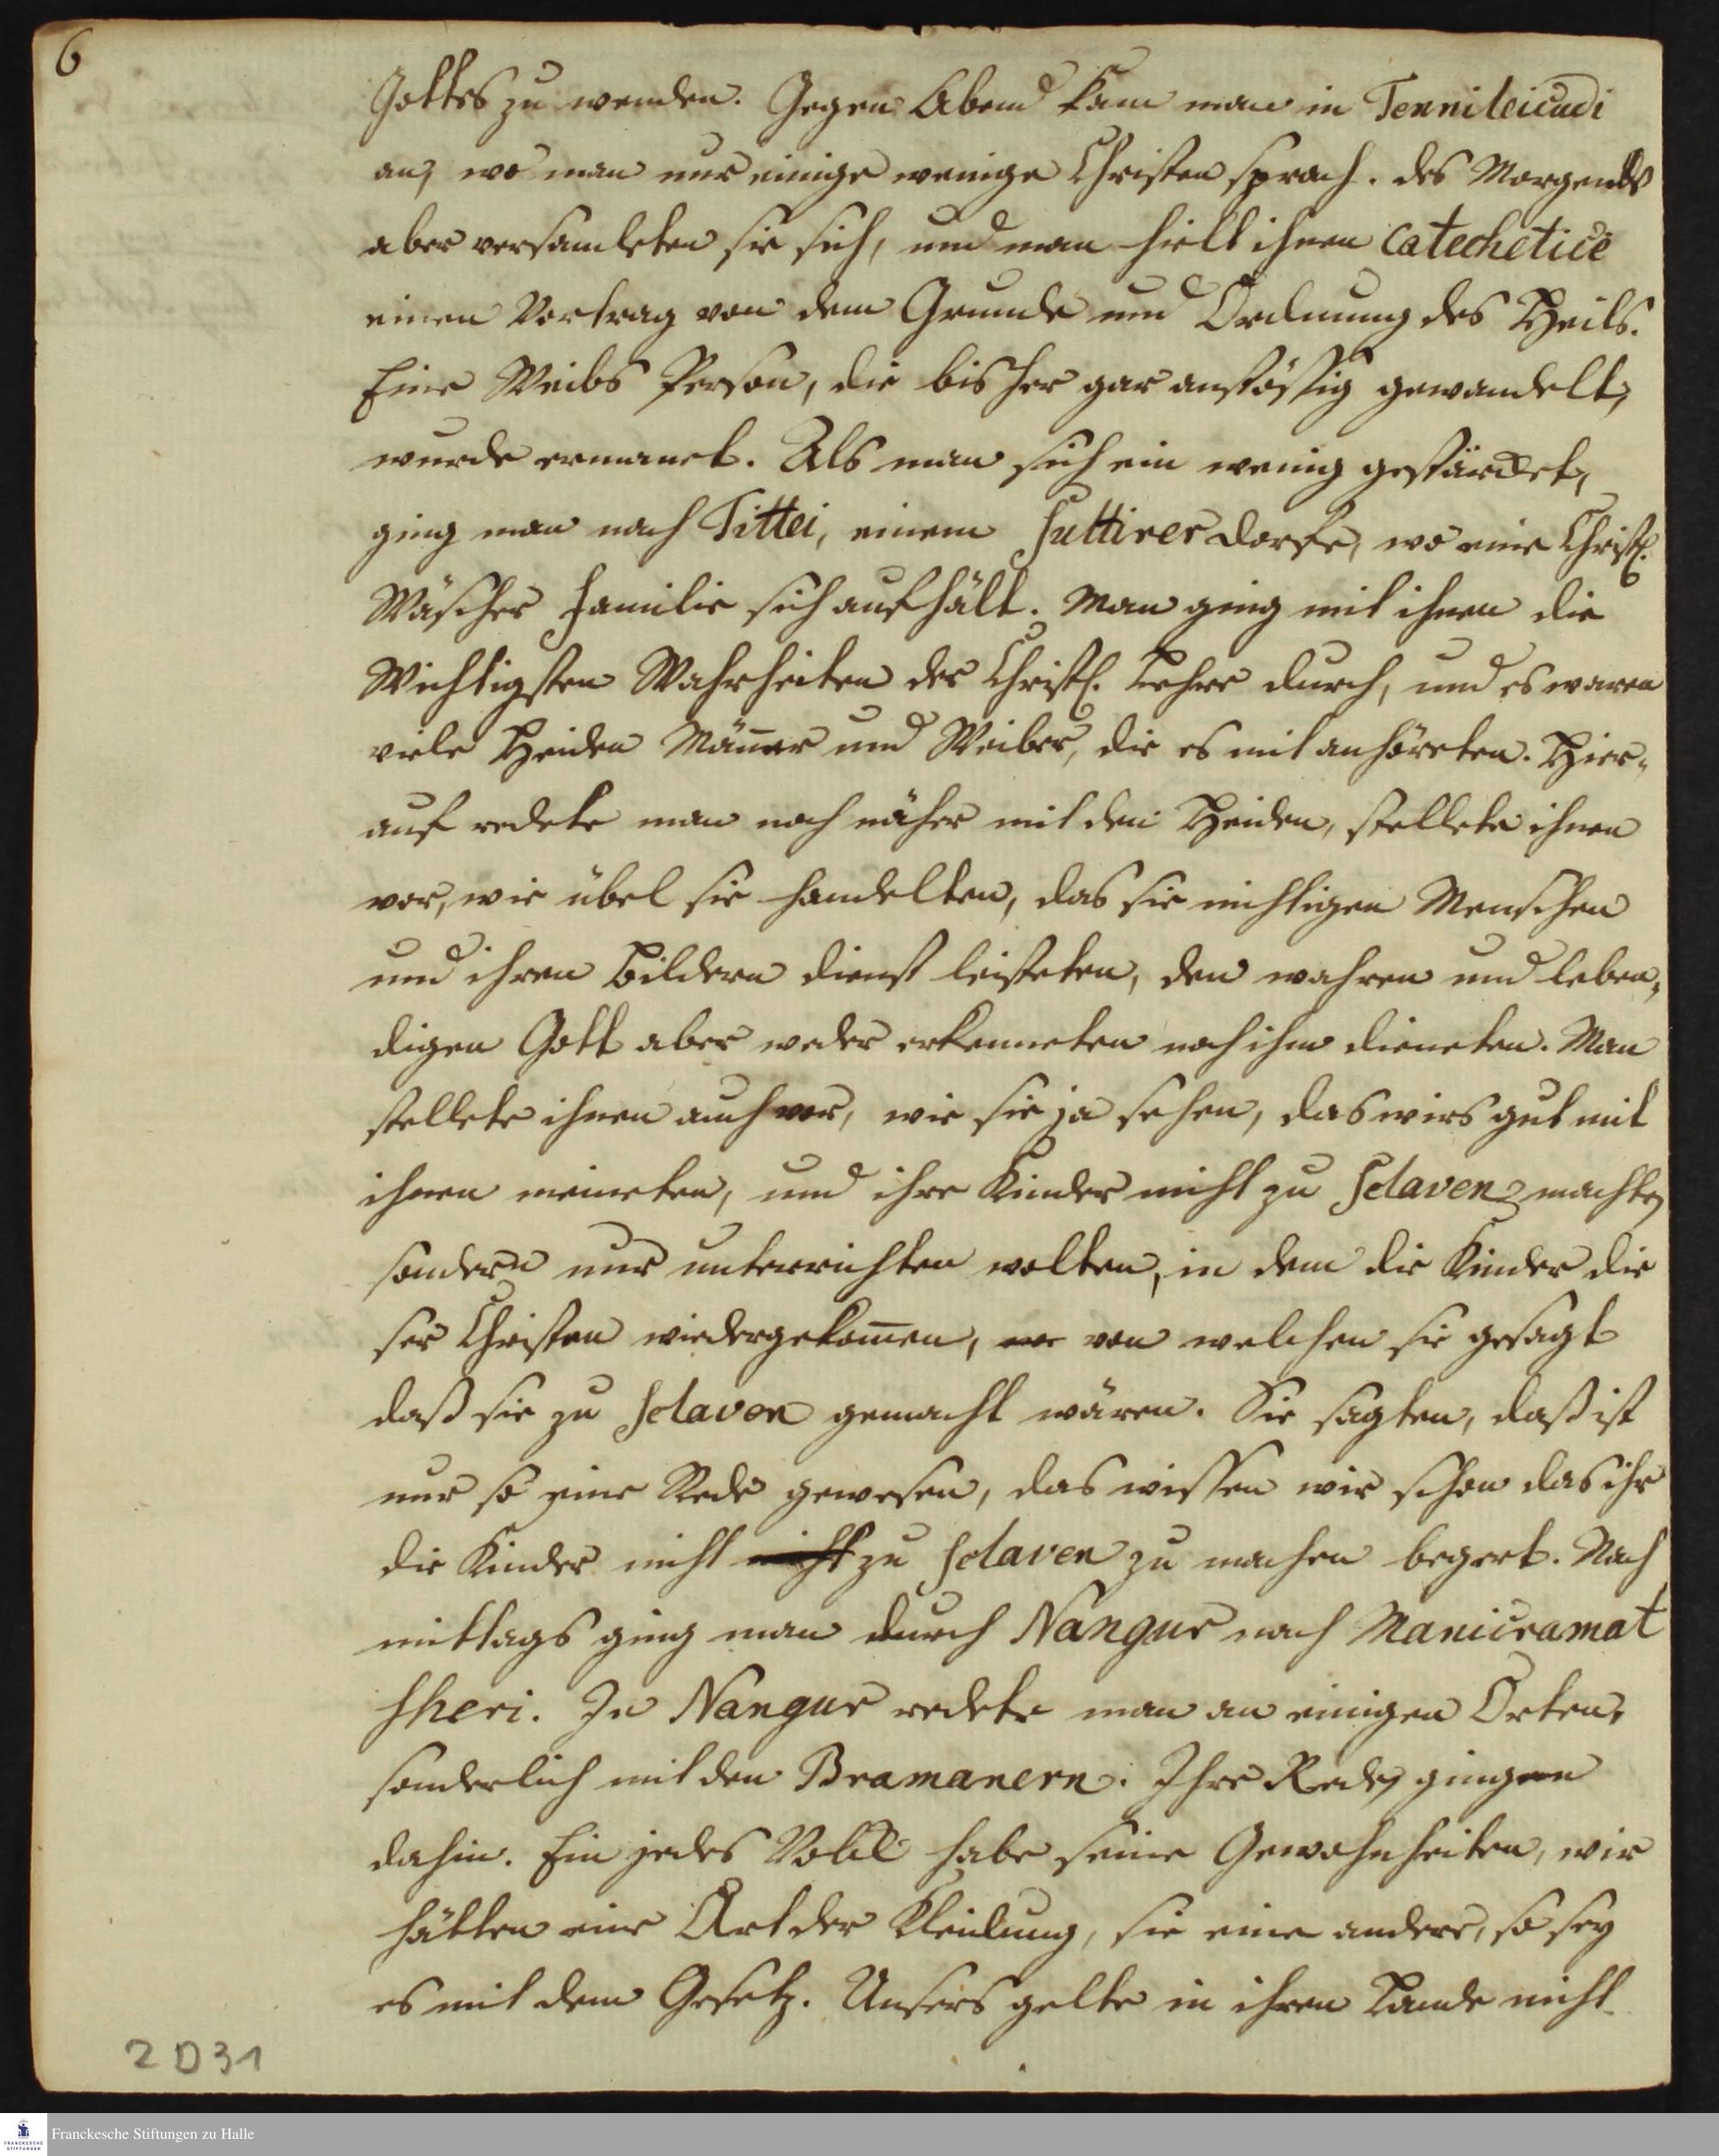 6
Gottes zu wenden. Gegen Abend kam man in Tennileicudi
an, wo man nur einige wenige Christen sprach. des Morgends
aber versamleten sie sich, und man hielt ihnen catechetice
einen Vortrag von dem Grunde und Ordnung des Heils.
Eine Weibs Person, die bisher gar anstößig gewandelt,
wurde ermanet. Als man sich ein wenig gestärcket,
ging man nach Tittei, einem Suttirer dorfe, wo eine Christl.
Wäscher familie sich aufhält. Man ging mit ihnen die
Wichtigsten Wahrheiten der Christl. Lehre durch, und es waren
viele Heiden Mäner und Weiber, die es mit anhöreten. Hier-
auf redete man noch näher mit den Heiden, stellete ihnen
vor, wie übel sie handelten, das sie nichtigen Menschen
und ihren Bildern dienst leisteten, den wahren und leben-
digen Gott aber weder erkenneten noch ihm dieneten. Man
stellete ihnen auch vor, wie sie ja sehen, das wirs gut mit
ihnen meineten, und ihre Kinder nicht zu Sclaven machten
sondern nur unterrichten wolten, in dem die Kinder die
ser Christen wiedergekomen, von welchen sie gesagt
daß sie zu Sclaven gemacht wären. Sie sagten, daß ist
nur so eine Rede gewesen, das wissen wir schon das ihr
die Kinder nicht nicht zu Sclaven zu machen begert. Nach
mittags ging man durch Nangur nach Manicramat
sheri. In Nangur redete man an einigen Orten,
sonderlich mit den Bramanern. Ihre Reden gingen
dahin. Ein jedes Volck habe seine Gewohnheiten, wir
hätten eine Art der Kleidung, sie eine andere, so sey
es mit dem Gesetz. Unsers gelte in ihren Lande nicht.
2 D 31
Franckesche Stiftungen zu Halle
FRANCKESCHE
STIFTUNGEN